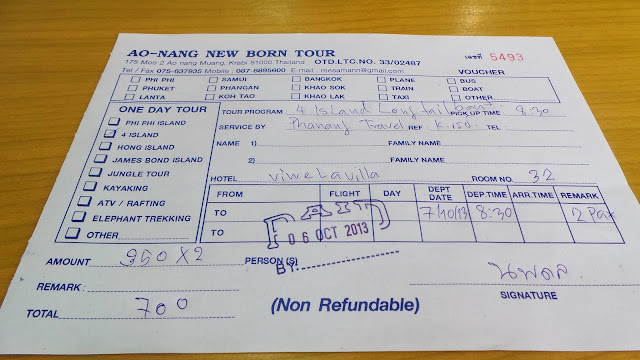 AO-NANG NEW BORN TOUR
175 Moo 2 Ao nang Muang, Krabi 81000 Thailand OTD.LTC.NO. 33/02487 เลขที่ 5493
Tel / Fax 075-637935 Mobile : 087-8895600 E-mail : reesamann@gmail.com VOUCHER
PHI PHI SAMUI BANGKOK PLANE BUS
PHUKET PHANGAN KHAO SOK TRAIN BOAT
LANTA KOH TAO KHAO LAK TAXI OTHER
ONE DAY TOUR
PHI PHI ISLAND
4 ISLAND
HONG ISLAND
JAMES BOND ISLAND
JUNGLE TOUR
KAYAKING
ATV / RAFTING
ELEPHANT TREKKING
OTHER
TOUR PROGRAM 4 Island Longtail boat PICK UP TIME 8:30
SERVICE BY Phanang Travel REF K. TEL
NAME 1) FAMILY NAME
2) FAMILY NAME
HOTEL ROOM NO. 32
FROM FLIGHT DAY DEPT DATE DEP.TIME ARR.TIME REMARK
TO 7/10/13 8:30 2 Pax
TO
PAID
06 OCT 2013
BY:
AMOUNT 350 X 2 PERSON (S)
REMARK :
TOTAL 700
(Non Refundable)
นพดล
SIGNATURE